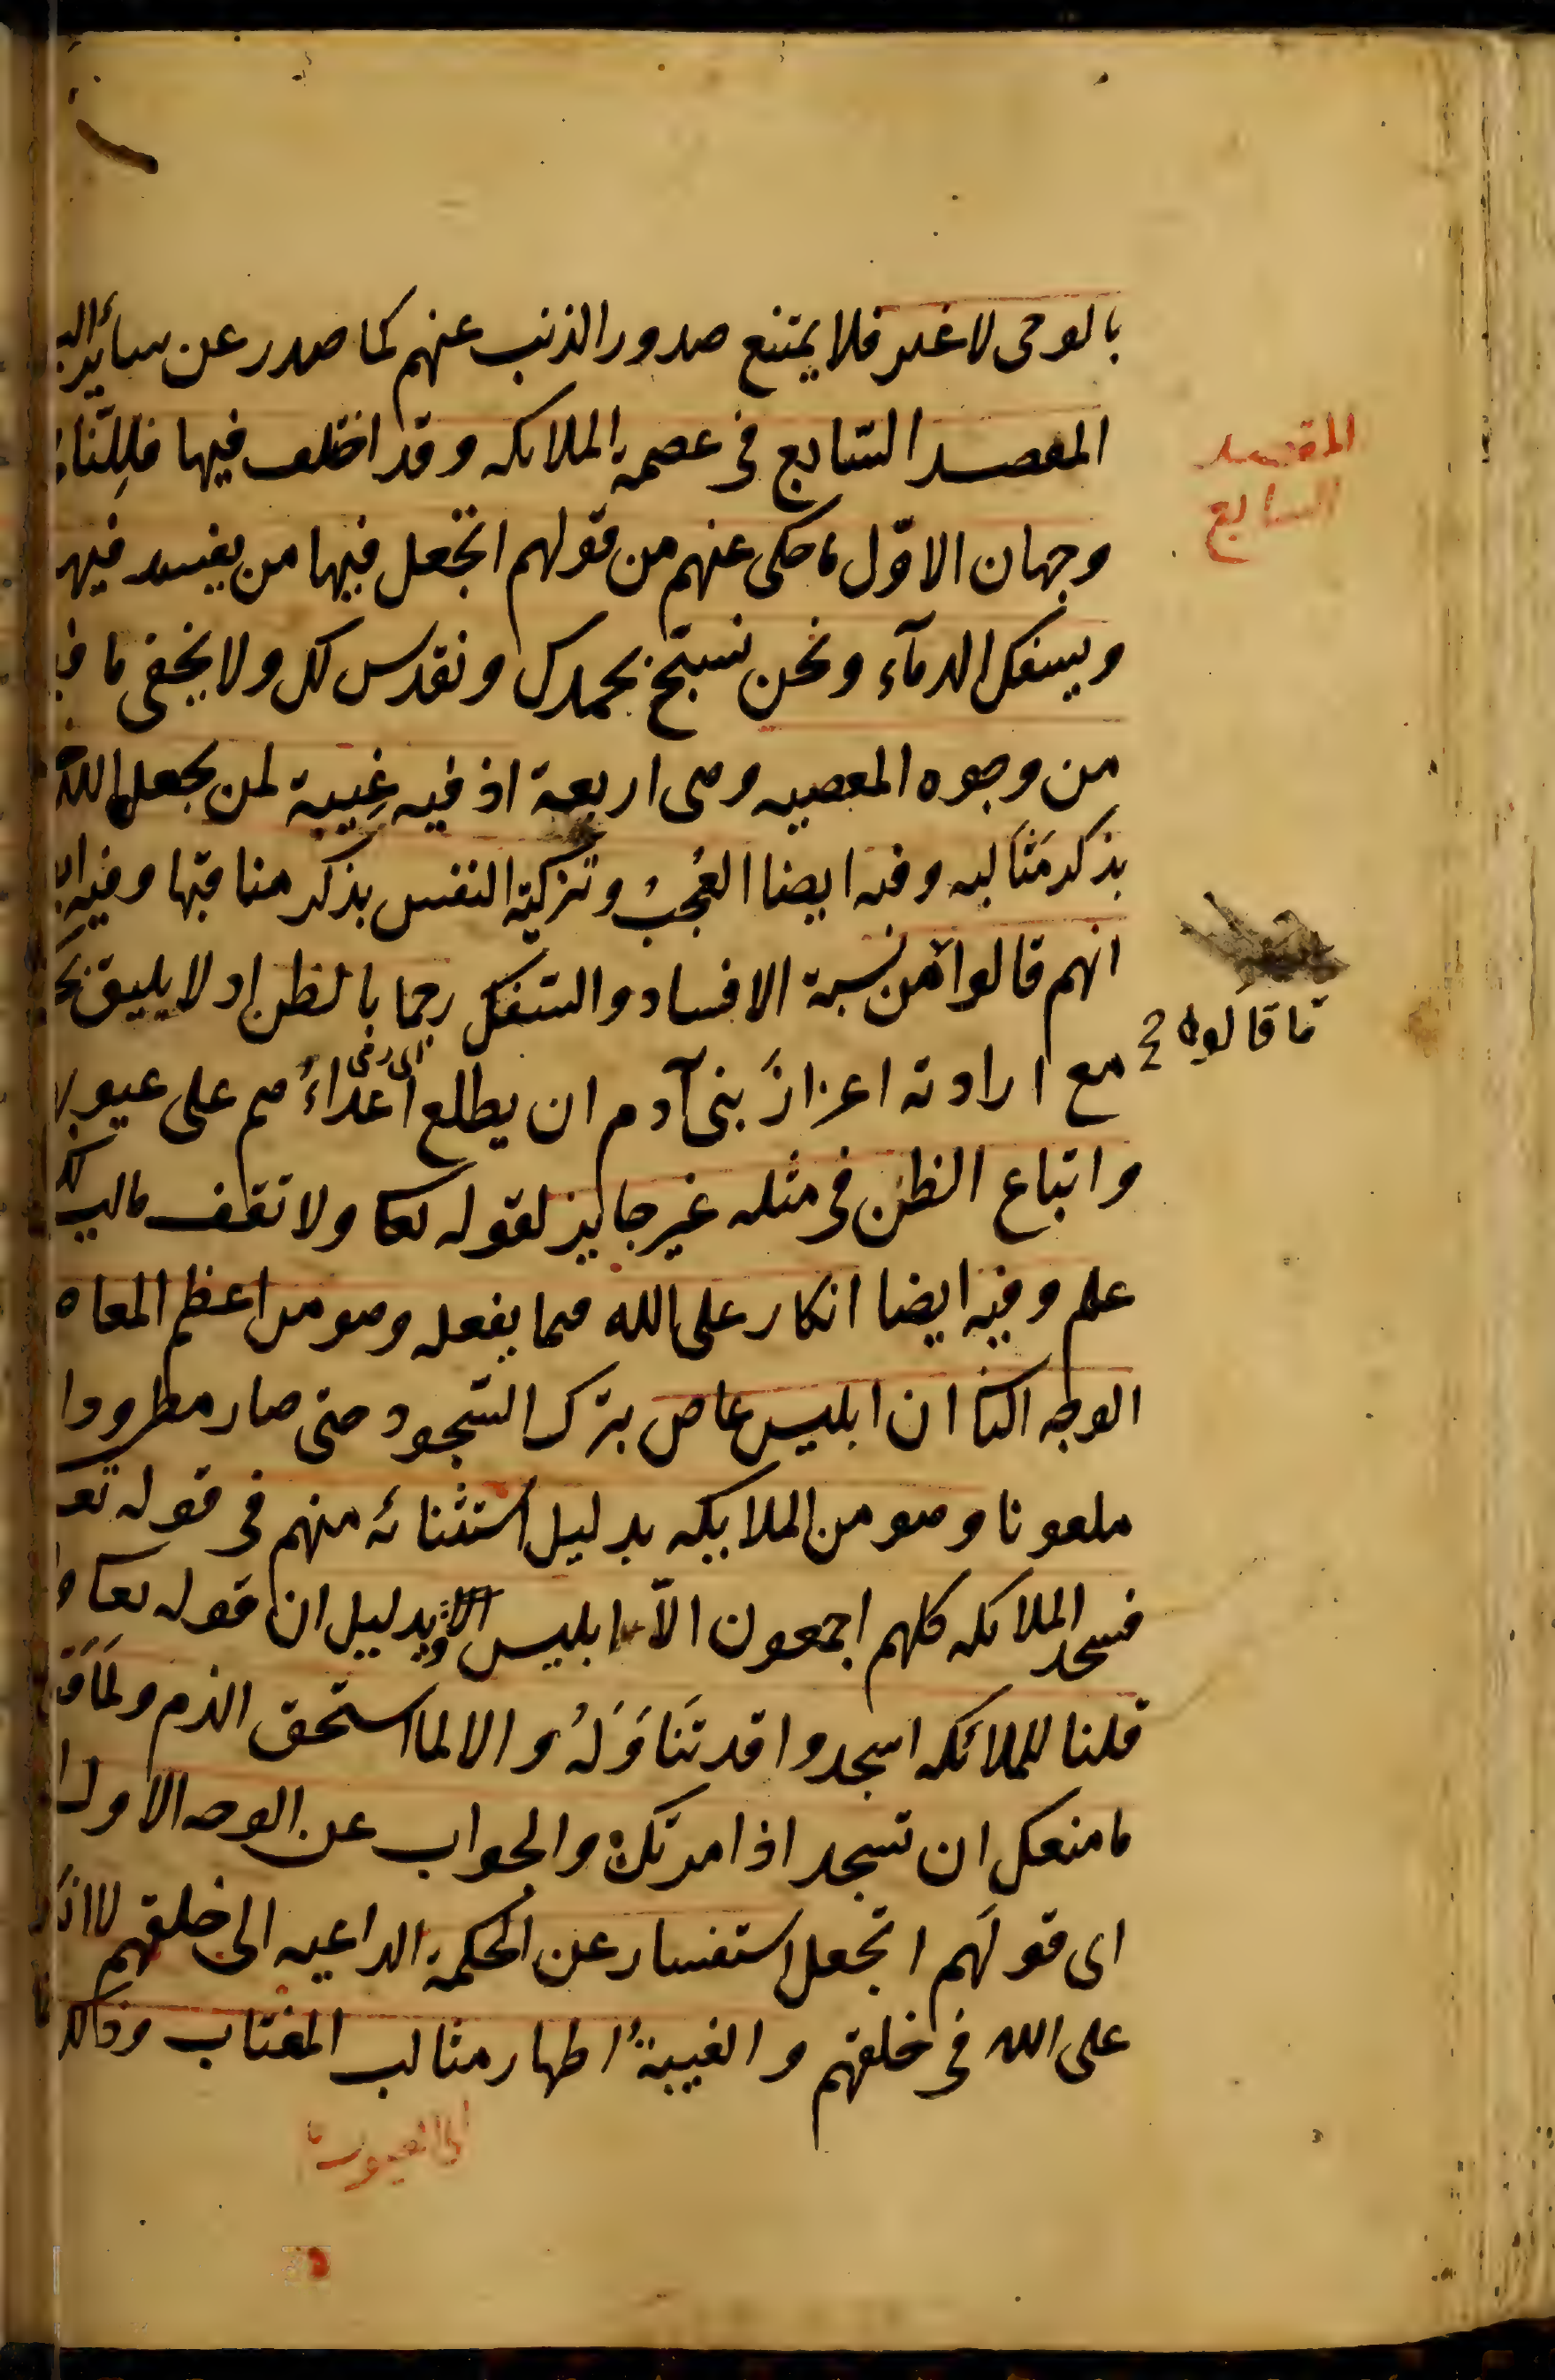 بالوحى لا غير فلا يمتنع صدور الذنب عنهم كما صدر عن سائر
المقصد السابع فى عصمة الملائكه وقد اختلف فيها
المقصد
السابع
وجهان الاوّل ما حكى عنهم من قولهم اتجعل فيها من يفسد فيها
ويسفك الدمآء ونحن نسبّح بحمدك ونقدس لك ولا يخفى ما
من وجوه المعصيه وهى اربعة اذ فيه غِيبة لمن يجعل الله
بذكر مَثَالبه وفيه ايضا العُجبُ وتزكية النفس بذكر مناقبها وفيه
انهم قالوا من نسبة الافساد والسّفك رجما بالظن اذ لا يليق
ما قالوه
مع ارادته اعزازَ بنى آدم ان يطلع اعداءَهم على
واتباع الظن فى مثله غير جايز لقوله تعا ولا تقف ما ليس لك
علم وفيه ايضا انكار على الله فيما يفعله وهو من اعظم
الوجه الثا ان ابليس عاص بترك السّجود حتى صار مطرودا
ملعونا وهو من الملايكه بدليل استثنائه منهم فى قوله تعا
فسجد الملائكه كلهم اجمعون الاّ ابليس وبدليل ان قوله تعا
قلنا للملائكه اسجدوا قد تَنَاوَلَهُ والا لما استحق الذم ولَمَا
ما منعك ان تسجد اذ امرتك والجواب عن الوجه الاول
اى قولَهم اتجعل استفسار عن الحكمة الداعيه الى خلقهم لا
على الله فى خلقهم والغيبةُ اظهار مثالب المغتاب وذلك